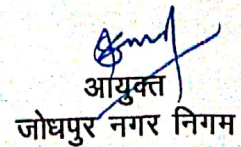 आयुक्त
जोधपुर नगर निगम